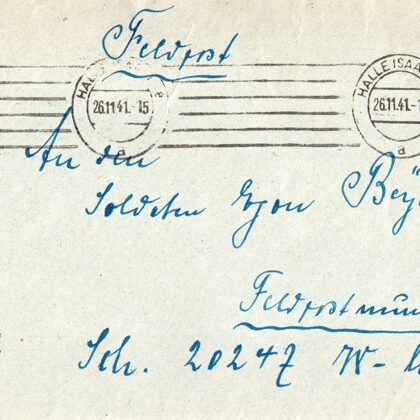 Feldpost
HALLE (SAALE
26.11.41.-15
a
HALLE (SAA
26.11.41.-1
a
An den
Soldaten Egon Bey
Feldpostnum
Sch. 20247 W-